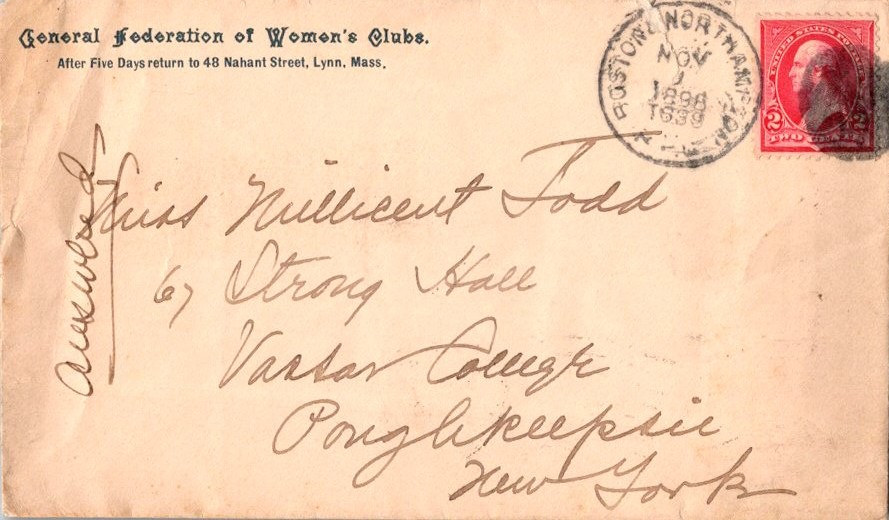 General Federation of Women's Clubs.
After Five Days return to 48 Nahant Street, Lynn, Mass.
BOSTON & NORTHAMPTON
NOV
1
1898
1899
UNITED STATES POSTAGE
2 2
TWO CENTS
answered
Miss Millicent Todd
67 Strong Hall
Vassar College
Poughkeepsie
New York